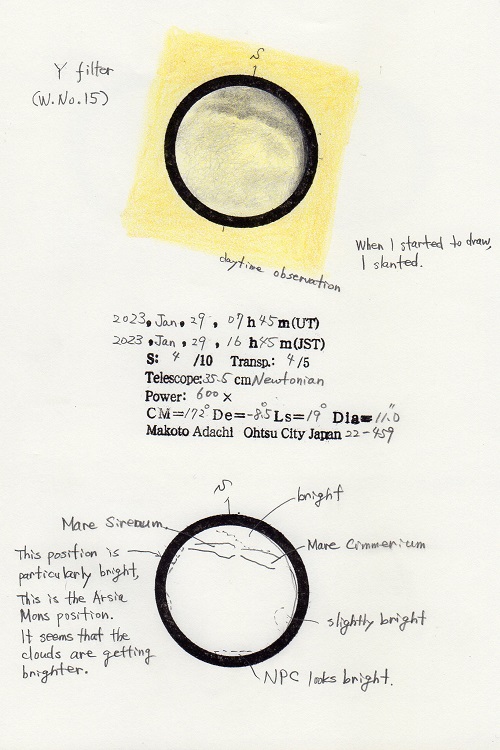 S
Y filter
(W.No.15)
daytime observation
When I started to draw,
I slanted.
2023, Jan, 29, 07 h 45 m(UT)
2023, Jan, 29, 16 h 45 m(JST)
S: 4 /10 Transp.: 4/5
Telescope: 35.5 cm Newtonian
Power: 600 ×
CM=172° De=-8.5° Ls=19° Dia=11.0"
Makoto Adachi Ohtsu City Japan 22-459
S
bright
Mare Sirenum.
Mare Cimmerium
This position is
particularly bright,
This is the Arsia
Mons position.
It seems that the
clouds are getting
brighter.
slightly bright
NPC looks bright.